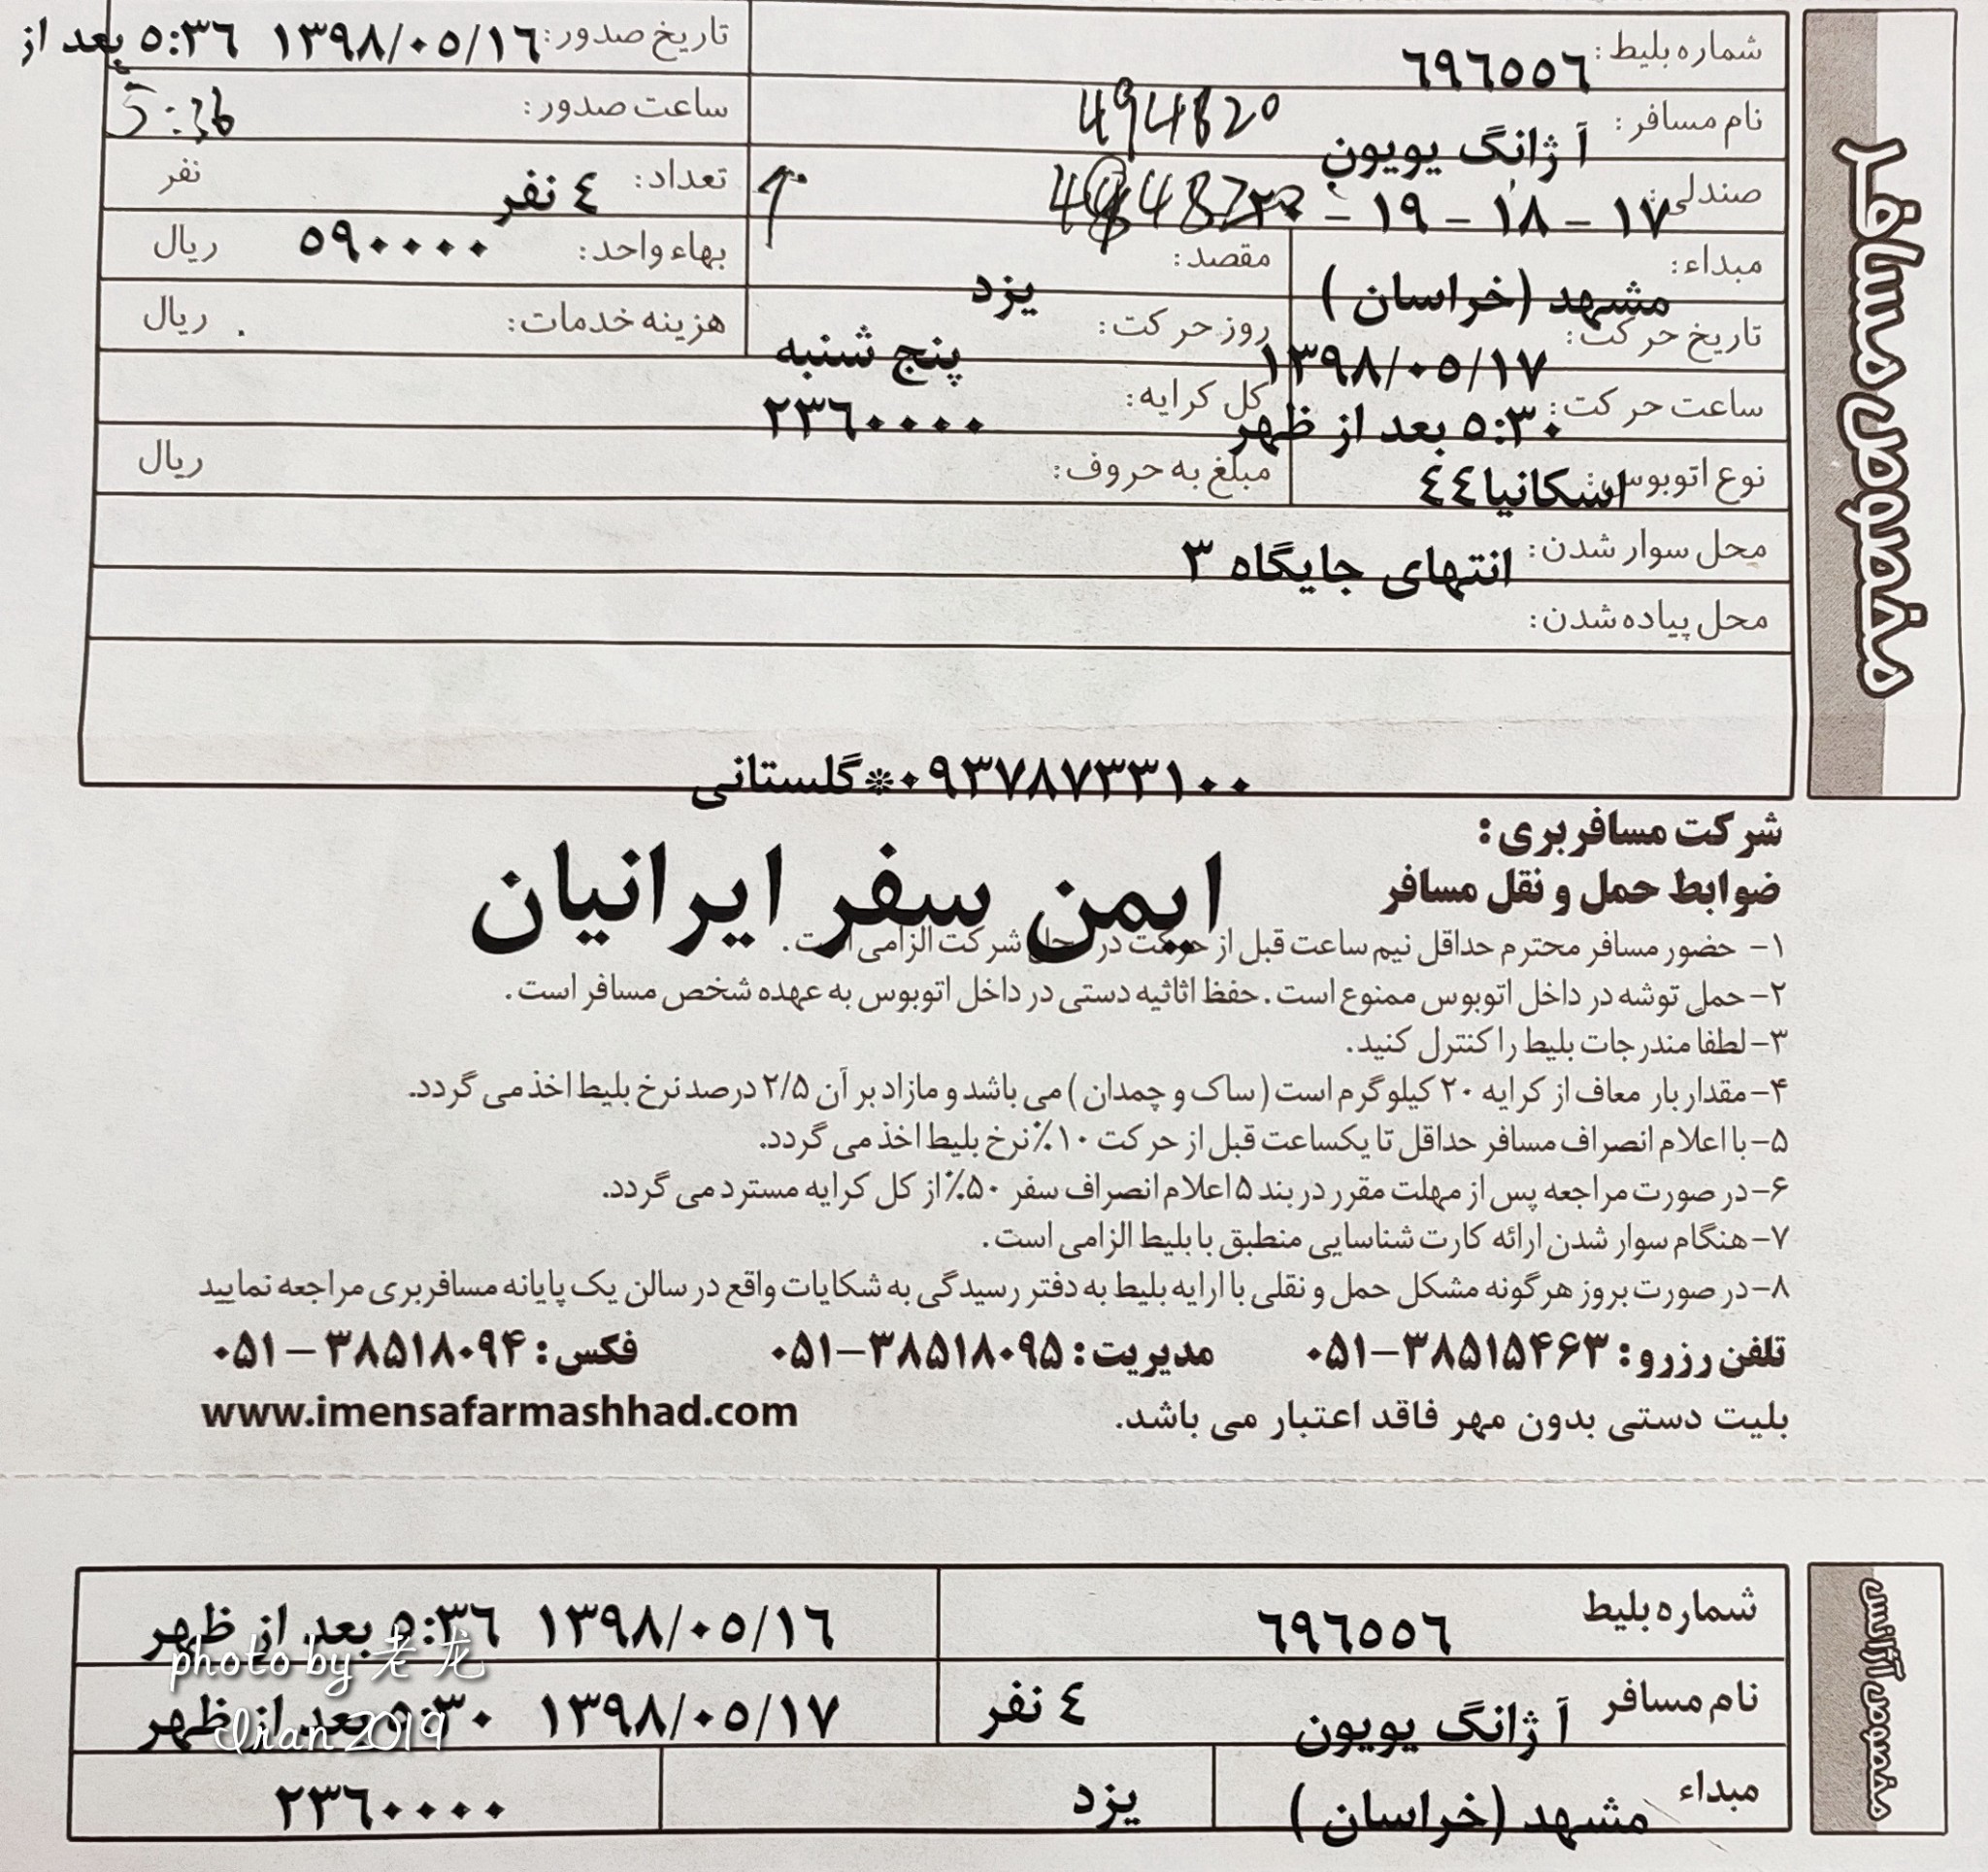 مخصوص مسافر
شماره بلیط: ٦٩٦٥٥٦
تاریخ صدور: ١٣٩٨/٠٥/١٦ ٥:٣٦ بعد از
نام مسافر: آ ژانگ یویون
494820
ساعت صدور: 5:36
صندلی: ١٧ - ١٨ - ١٩ - ٢٠
تعداد: ٤ نفر نفر
مبداء: مشهد (خراسان )
مقصد: یزد
بهاء واحد: ٥٩٠٠٠٠ ریال
تاریخ حرکت: ١٣٩٨/٠٥/١٧
روز حرکت: پنج شنبه
هزینه خدمات: ٠ ریال
ساعت حرکت: ٥:٣٠ بعد از ظهر
کل کرایه: ٢٣٦٠٠٠٠
نوع اتوبوس: اسکانیا٤٤
مبلغ به حروف: ریال
محل سوار شدن: انتهای جایگاه ٣
محل پیاده شدن:
٠٩٣٧٨٧٣٣١٠٠*گلستانی
شرکت مسافربری: ایمن سفر ایرانیان
ضوابط حمل و نقل مسافر
۱- حضور مسافر محترم حداقل نیم ساعت قبل از حرکت در محل شرکت الزامی است.
۲- حمل توشه در داخل اتوبوس ممنوع است. حفظ اثاثیه دستی در داخل اتوبوس به عهده شخص مسافر است.
۳- لطفا مندرجات بلیط را کنترل کنید.
۴- مقدار بار معاف از کرایه ۲۰ کیلوگرم است (ساک و چمدان) می باشد و مازاد بر آن ۲/۵ درصد نرخ بلیط اخذ می گردد.
۵- با اعلام انصراف مسافر حداقل تا یکساعت قبل از حرکت ۱۰٪ نرخ بلیط اخذ می گردد.
۶- در صورت مراجعه پس از مهلت مقرر در بند ۵ اعلام انصراف سفر ۵۰٪ از کل کرایه مسترد می گردد.
۷- هنگام سوار شدن ارائه کارت شناسایی منطبق با بلیط الزامی است.
۸- در صورت بروز هر گونه مشکل حمل و نقلی با ارایه بلیط به دفتر رسیدگی به شکایات واقع در سالن یک پایانه مسافربری مراجعه نمایید
تلفن رزرو: ۳۸۵۱۵۴۶۳-۰۵۱ مدیریت: ۳۸۵۱۸۰۹۵-۰۵۱ فکس: ۳۸۵۱۸۰۹۴ - ۰۵۱
بلیت دستی بدون مهر فاقد اعتبار می باشد. www.imensafarmashhad.com
مخصوص آژانس
شماره بلیط ٦٩٦٥٥٦ ١٣٩٨/٠٥/١٦ ٥:٣٦ بعد از ظهر
نام مسافر آ ژانگ یویون ٤ نفر ١٣٩٨/٠٥/١٧ ٥:٣٠ بعد از ظهر
مبداء مشهد (خراسان ) یزد ٢٣٦٠٠٠٠
photo by 老龙
Iran 2019